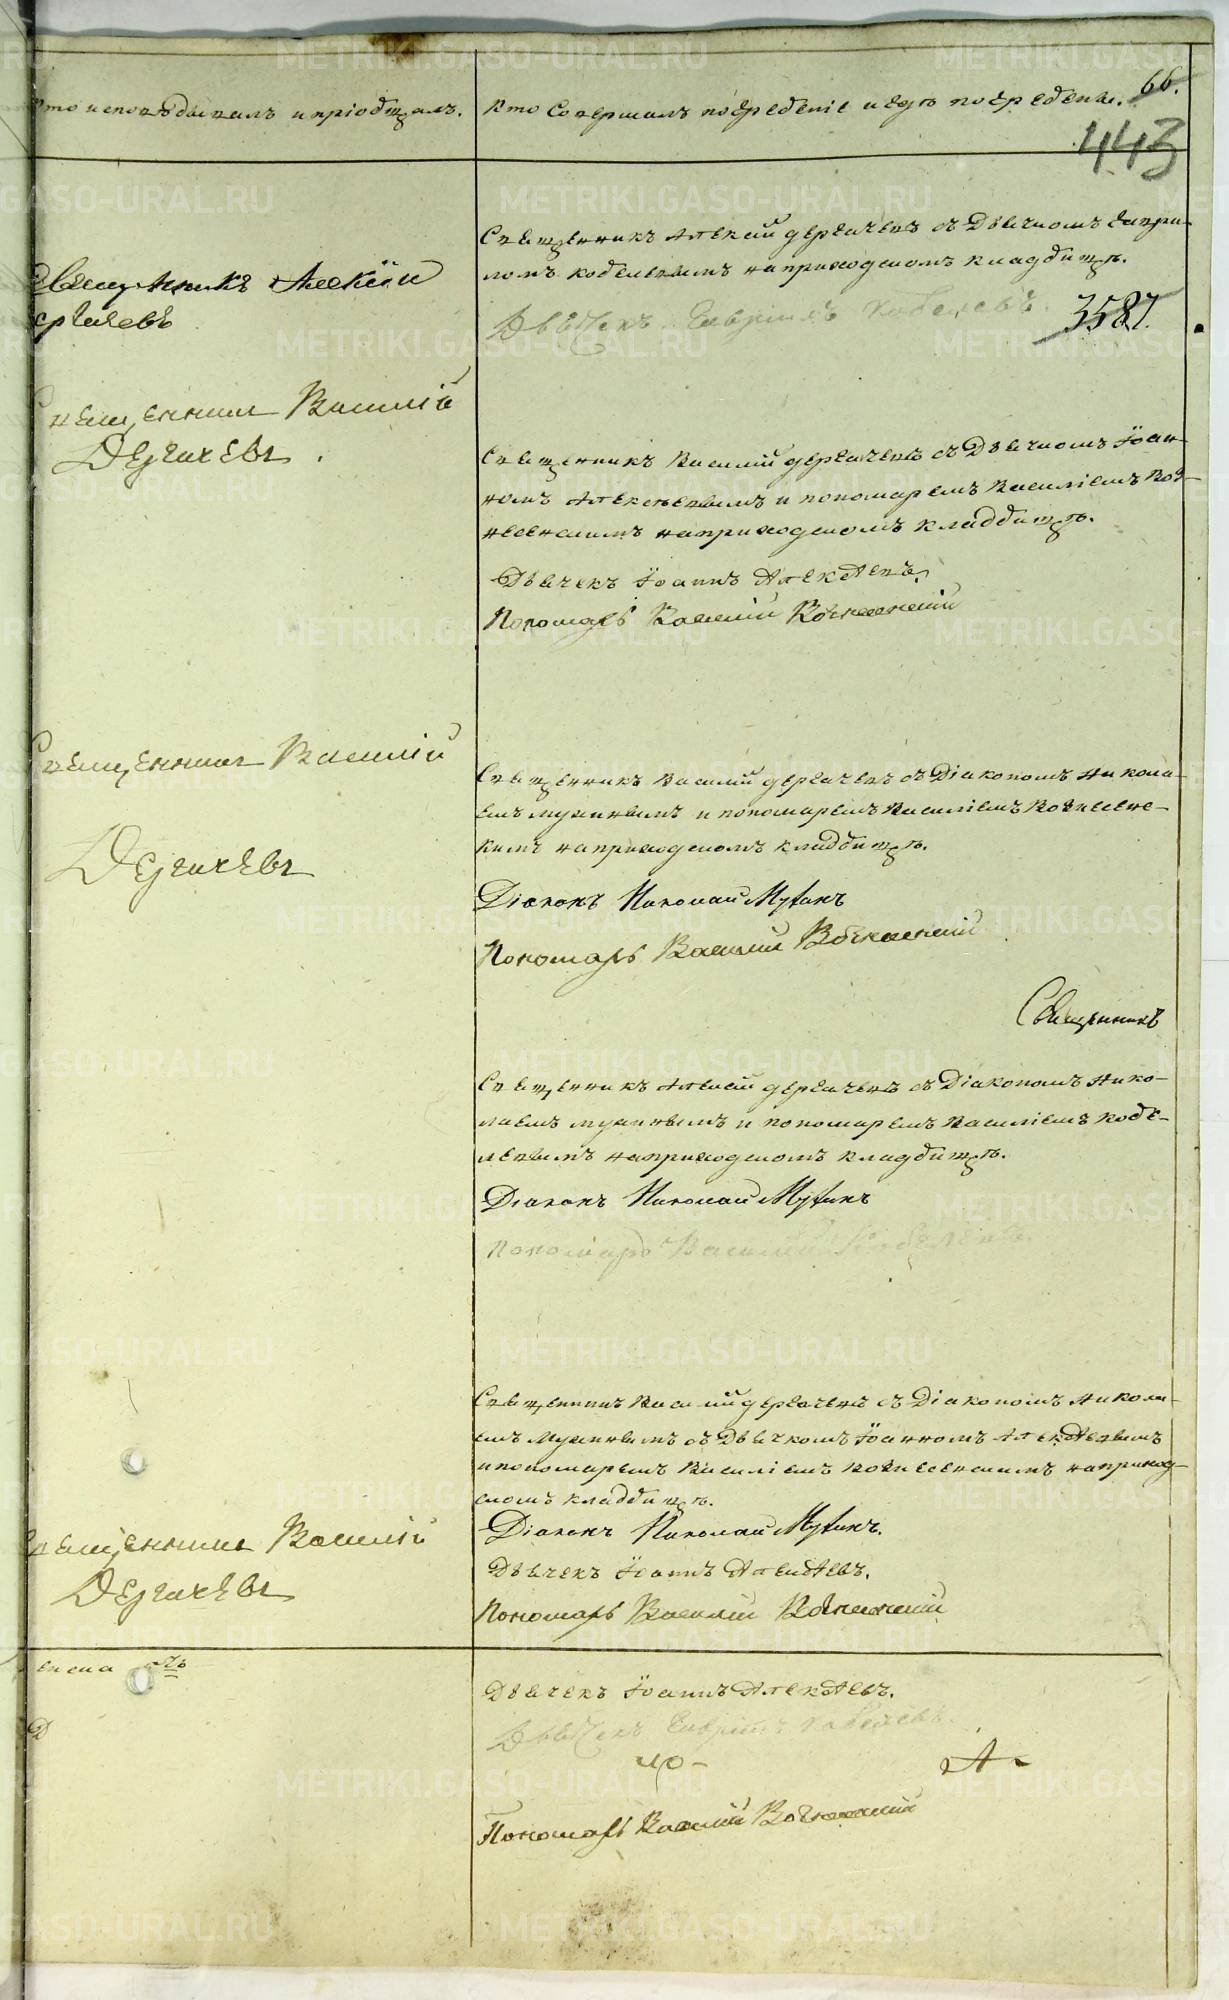 Кто исповѣдывалъ и пріобщалъ.
Кто Совершалъ погребеніе и гдѣ погребены.
66.
443
Священникъ Алексій Дергачевъ съ Дьячкомъ Гаврі-
ломъ Кобелевымъ на приходскомъ кладбищѣ.
Дьячекъ Гавріилъ Кобелевъ.
3587.
Священникъ Алексій
Дергачевъ
Священникъ Василій
Дергачевъ.
Священникъ Василій Дергачевъ съ Дьячкомъ Іоан-
номъ Алексѣевымъ и пономаремъ Василіемъ Воз-
несенскимъ на приходскомъ кладбищѣ.
Дьячекъ Іоаннъ Алексѣевъ.
Пономарь Василій Вознесенскій
Священникъ Василій
Дергачевъ
Священникъ Василій Дергачевъ съ Діакономъ Никола-
емъ Мухинымъ и пономаремъ Василіемъ Вознесенс-
кимъ на приходскомъ кладбищѣ.
Діаконъ Николай Мухинъ
Пономарь Василій Вознесенскій
Священникъ
Священникъ Алексій Дергачевъ съ Діакономъ Нико-
лаемъ Мухинымъ и пономаремъ Василіемъ Кобе-
левымъ на приходскомъ кладбищѣ.
Діаконъ Николай Мухинъ
Пономарь Василій Кобелевъ.
Священникъ Василій Дергачевъ съ Діакономъ Никола-
емъ Мухинымъ съ Дьячкомъ Іоанномъ Алексѣевымъ
и пономаремъ Василіемъ Вознесенскимъ на приход-
скомъ кладбищѣ.
Діаконъ Николай Мухинъ.
Дьячекъ Іоаннъ Алексѣевъ.
Пономарь Василій Вознесенскій
Священникъ Василій
Дергачевъ
Дьячекъ Іоаннъ Алексѣевъ.
Дьячекъ Гавріилъ Кобелевъ.
Пономарь Василій Вознесенскій
METRIKI.GASO-URAL.RU